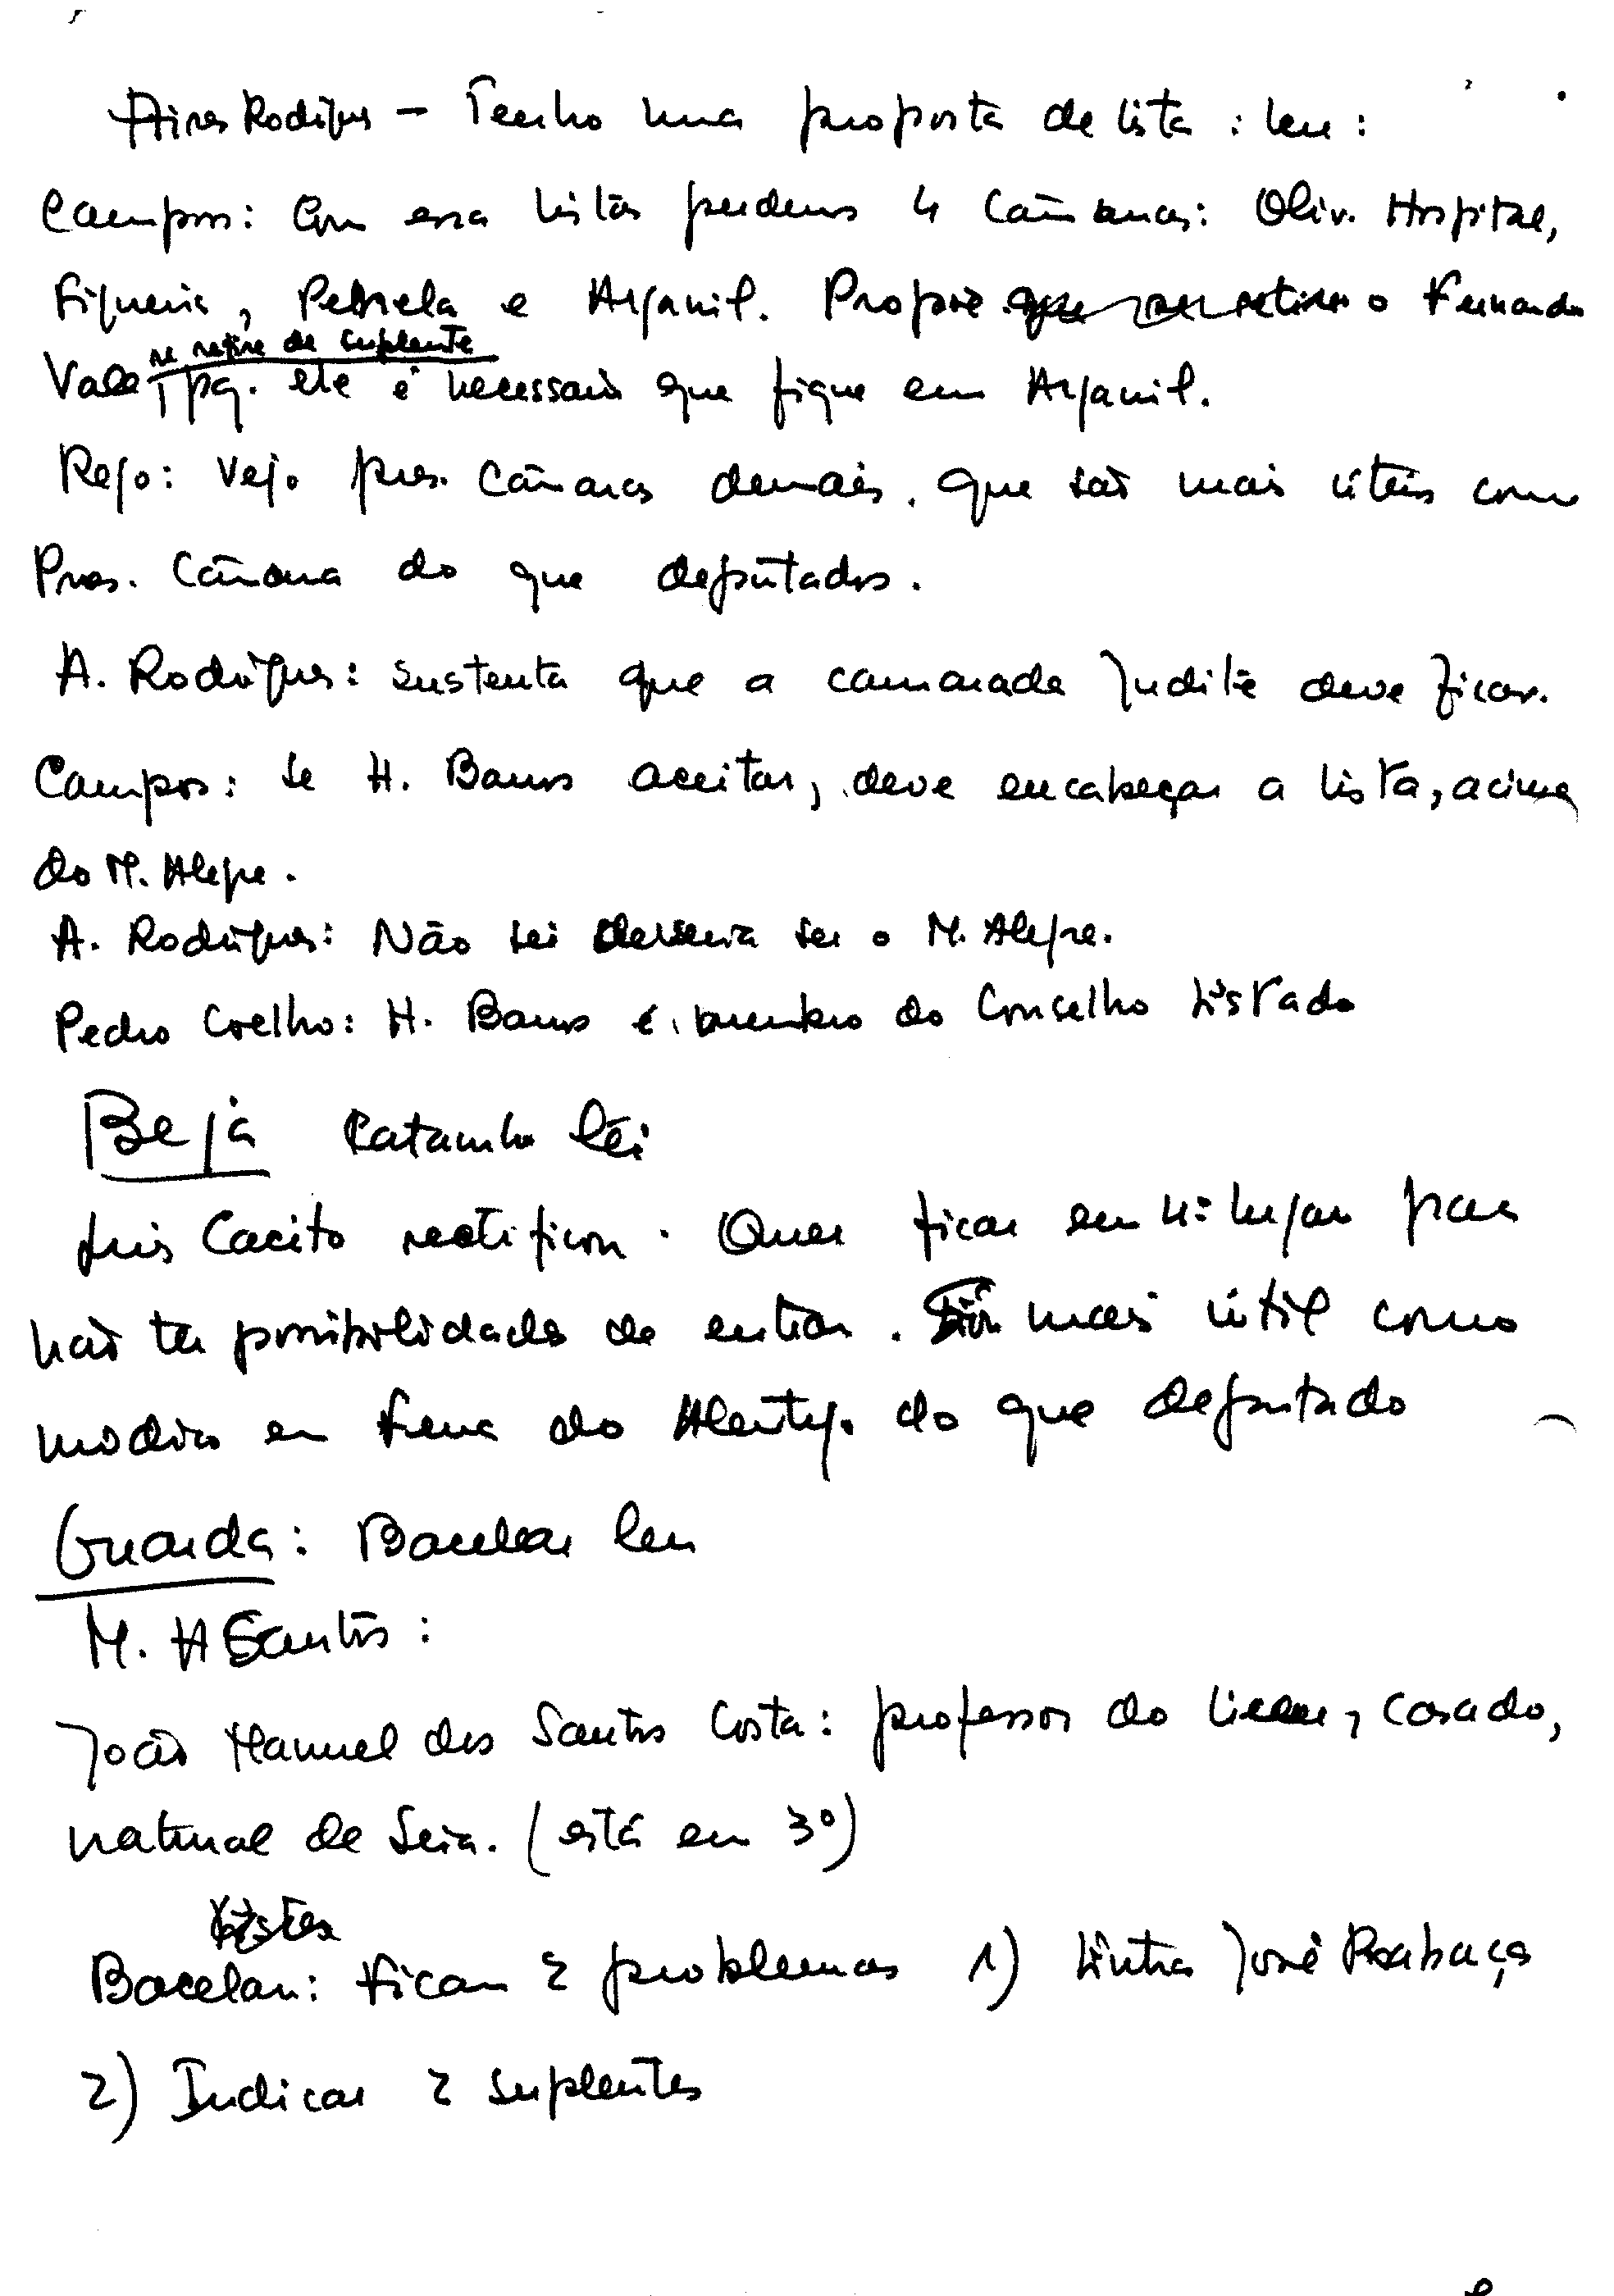 Aires Rodrigues — Tenho uma proposta de lista : leu :
Campos: Com essa listas perdemos 4 Câmaras: Oliv. Hospital,
Figueira, Penela e Arganil. Propõe que o Fernando
se retire de suplente
Vale pq. ele é necessario que fique em Arganil.
Rego: Vejo pres. Câmaras demais. que são mais úteis como
Pres. Câmara do que deputados.
A. Rodrigues: sustenta que a camarada Judite deve ficar.
Campos: se H. Barros aceitar, deve encabeçar a lista, acima
do M. Alegre.
A. Rodrigues: Não sei ser o M. Alegre.
Pedro Coelho: H. Barros é membro do Conselho
Beja Catarinho
Luis Cacito rectificou. Quer ficar em 4º lugar para
não ter possibilidade de entrar. mais útil como
médico em do Alentejo do que deputado
Guarda: Bacelar leu
M. A Santos :
João Manuel dos Santos Costa: professor do liceu, casado,
natural de Seia. (está em 3º)
Bacelar: Ficam 2 problemas 1) Sintra José Rabaça
2) Indicar 2 suplentes